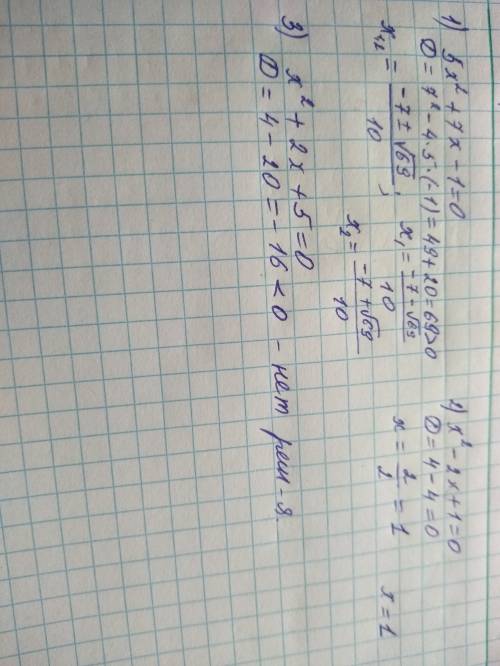 1) 5x² + 7x - 1 = 0
D = 7² - 4·5·(-1) = 49 + 20 = 69 > 0
x₁,₂ = (-7 ± √69)/10 ; x₁ = (-7 - √69)/10
x₂ = (-7 + √69)/10
2) x² - 2x + 1 = 0
D = 4 - 4 = 0
x = 2/2 = 1 x = 1
3) x² + 2x + 5 = 0
D = 4 - 20 = -16 < 0 - нет реш-я.